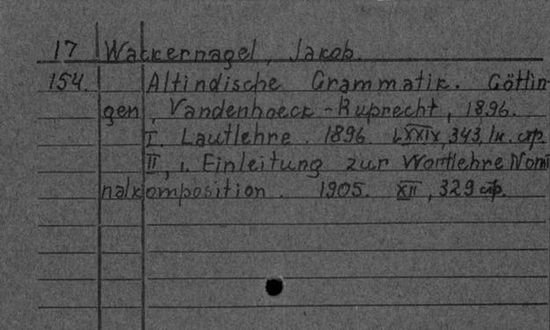 17 Wackernagel, Jakob.
154. Altindische Grammatik. Göttin
gen, Vandenhoeck-Ruprecht, 1896.
I. Lautlehre. 1896 LXXIX, 343, IX. стр.
II, 1. Einleitung zur Wortlehre Nomi
nalkomposition. 1905. XII, 329 стр.